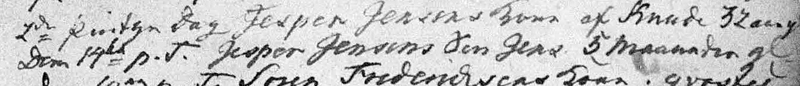 2den Pintze Dag Jesper Jensens Kone af Knude 32 aar g
Dom 14de p. T. Jesper Jensens Søn Jens 5 Maaneder gl
p. T. Søren Fredericksens Kone